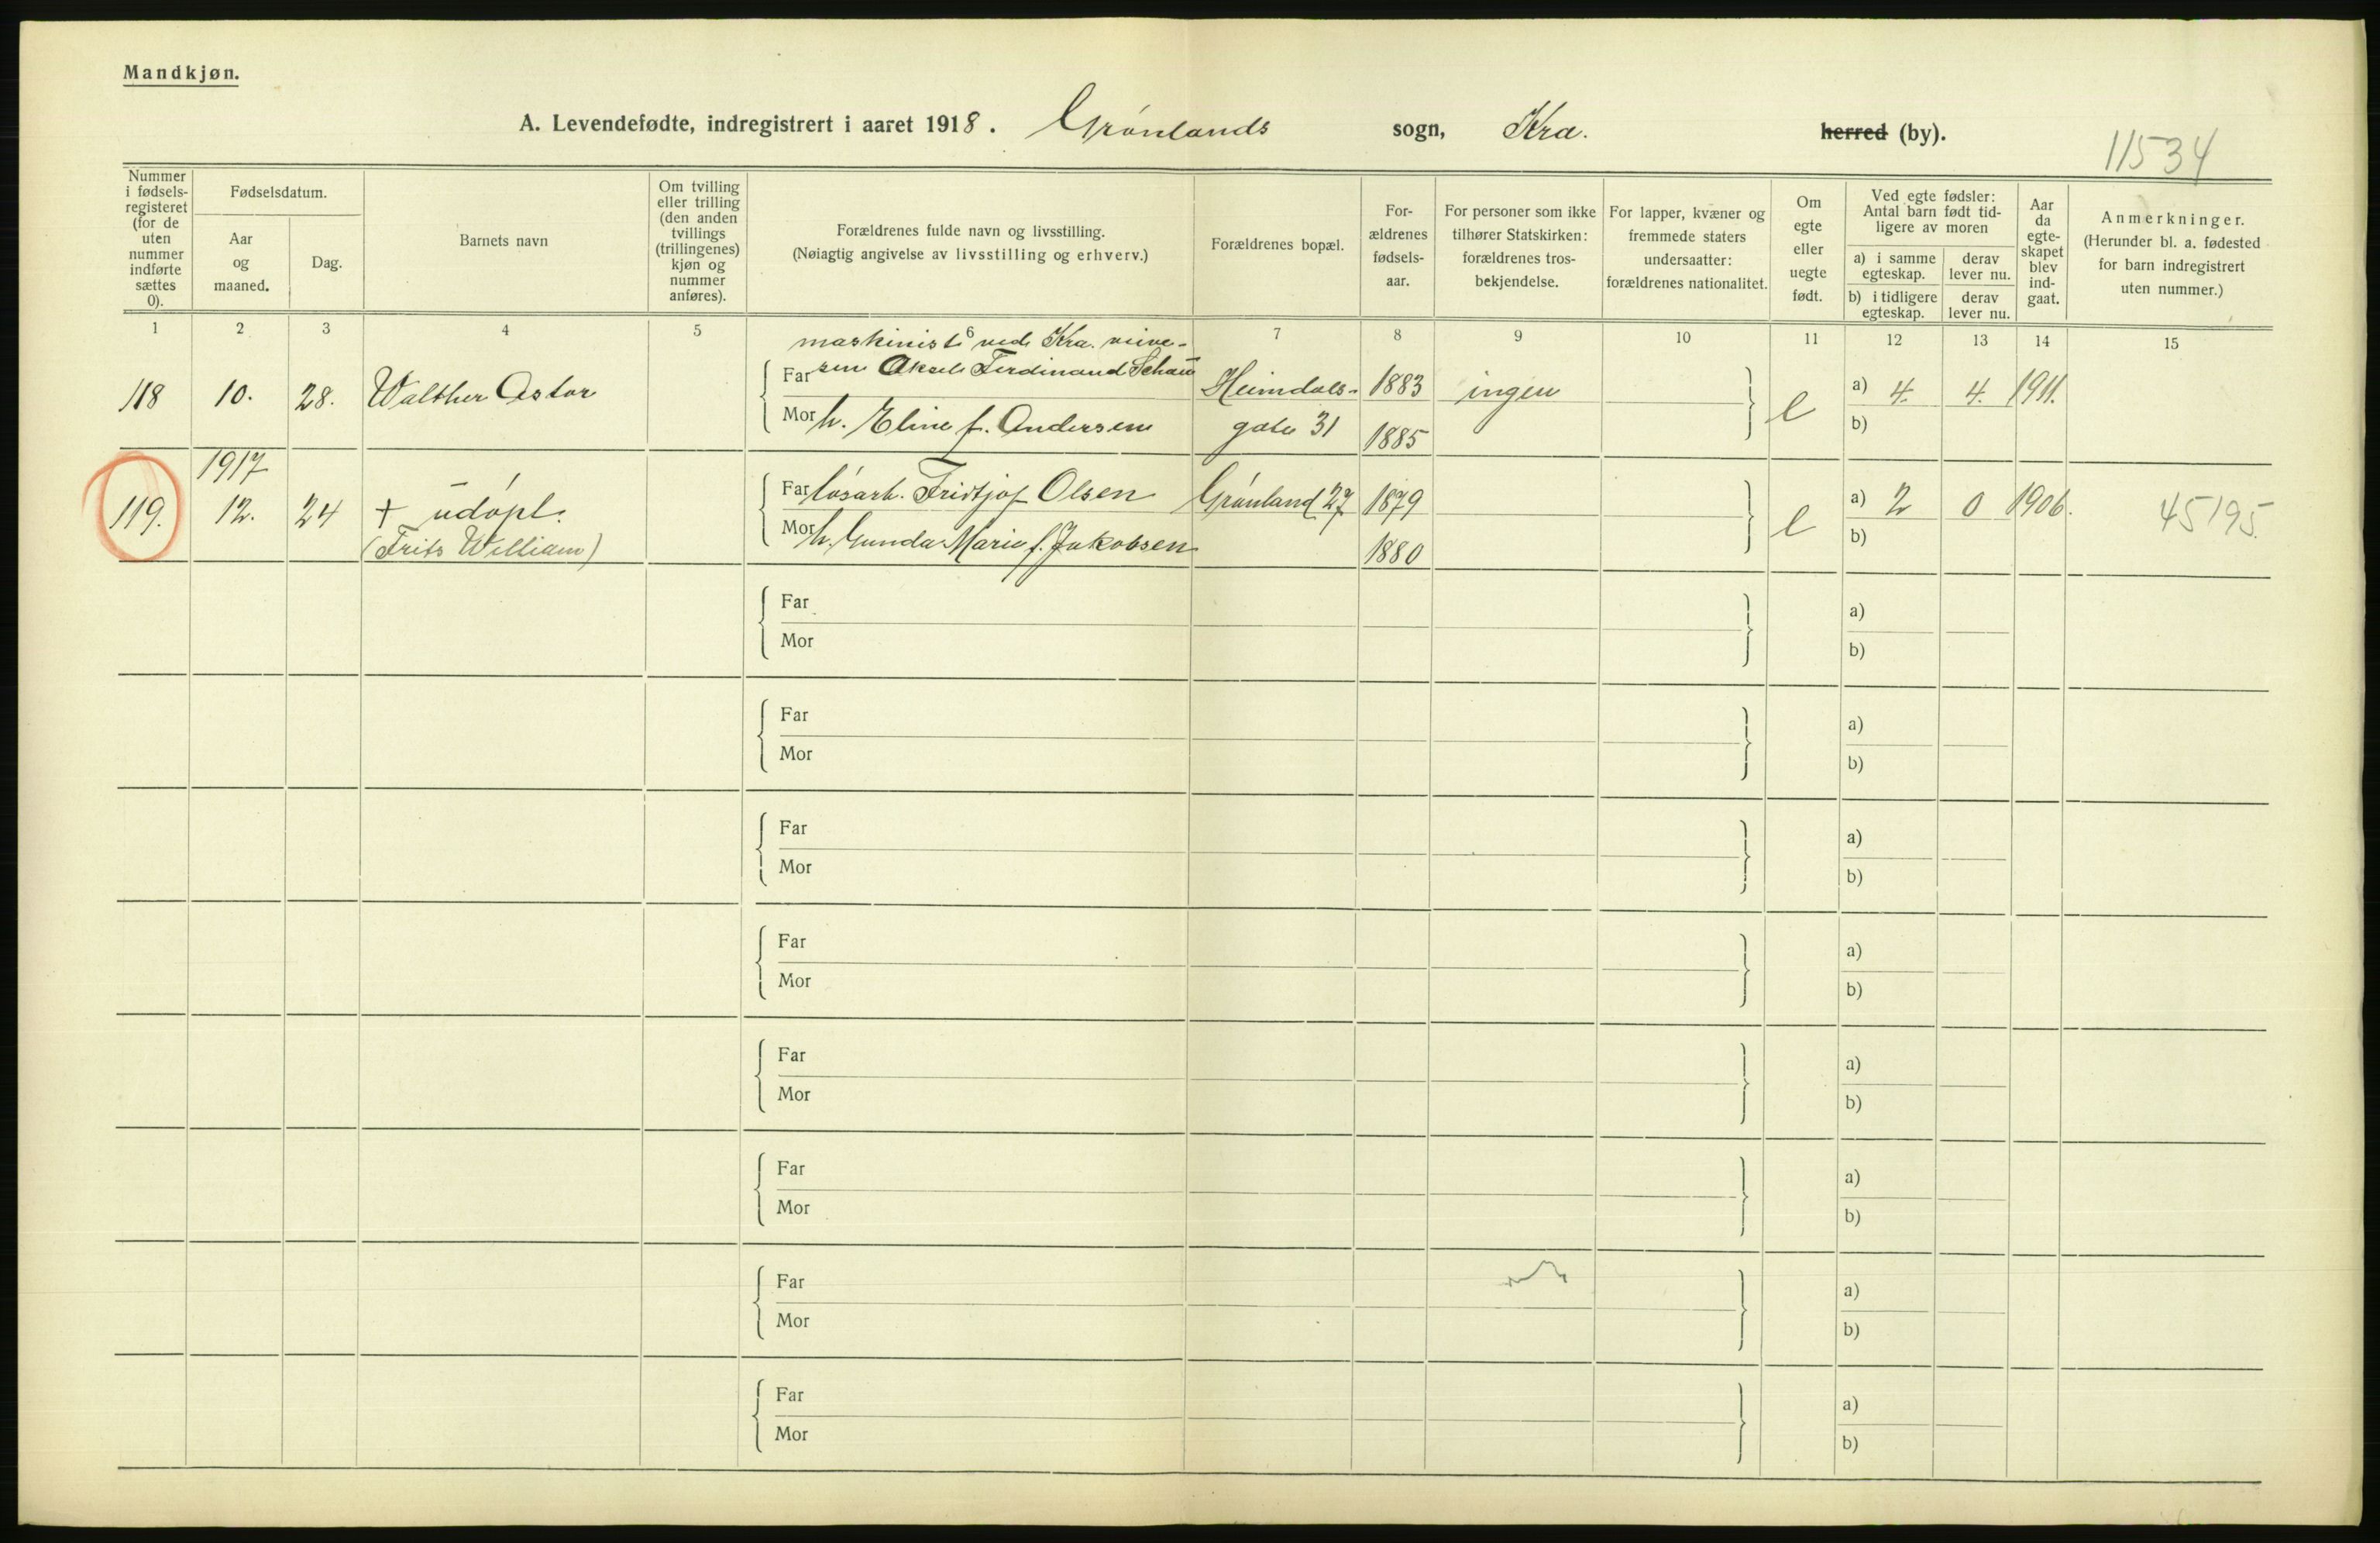 Mandkjøn.
A. Levendefødte, indregistrert i aaret 1918. Grønlands sogn, Kra. herred (by).
11534
Nummer i fødsels-registeret (for de uten nummer indførte sættes 0).
Fødselsdatum.
Aar og maaned.
Dag.
Barnets navn
Om tvilling eller trilling (den anden tvillings (trillingenes) kjøn og nummer anføres).
Forældrenes fulde navn og livsstilling.
(Nøiagtig angivelse av livsstilling og erhverv.)
Forældrenes bopæl.
For-ældrenes fødsels-aar.
For personer som ikke tilhører Statskirken: forældrenes tros-bekjendelse.
For lapper, kvæner og fremmede staters undersaatter: forældrenes nationalitet.
Om egte eller uegte født.
Ved egte fødsler: Antal barn født tid-ligere av moren
a) i samme egteskap.
derav lever nu.
b) i tidligere egteskap.
derav lever nu.
Aar da egte-skapet blev ind-gaat.
Anmerkninger.
(Herunder bl. a. fødested for barn indregistrert uten nummer.)
1 2 3 4 5 6 7 8 9 10 11 12 13 14 15
maskinist ved Kra.
118 10. 28. Walther Astor Far Aksel Ferdinand Heimdals- 1883 ingen e a) 4. 4. 1911.
Mor h. Eline f. Andersen gate 31 1885 b)
1917
119. 12. 24 + udøpt. Far løsarb. Fridtjof Olsen Grønland 27 1879 e a) 2 0 1906. 45195.
(Frits William) Mor h. Gunda Marie f. Jakobsen 1880 b)
Far a)
Mor b)
Far a)
Mor b)
Far a)
Mor b)
Far a)
Mor b)
Far a)
Mor b)
Far a)
Mor b)
Far a)
Mor b)
Far a)
Mor b)